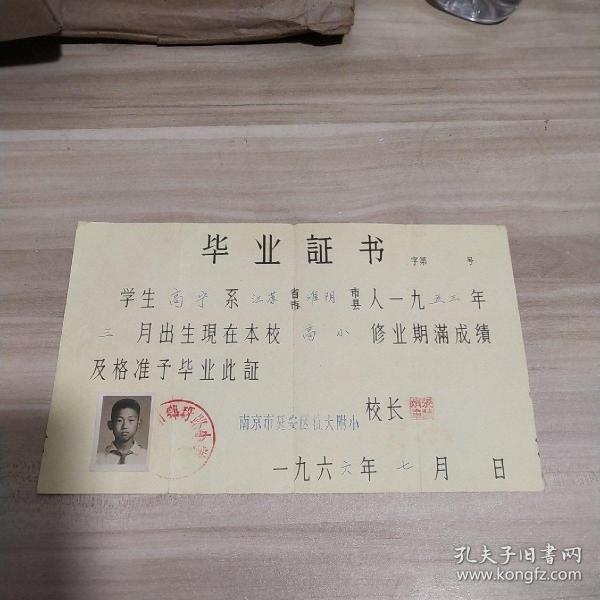 毕业証书
字第 号
学生 高宁 系 江苏 省市 淮阴 市县 人一九五三年
三月出生現在本校 高小 修业期滿成績
及格准予毕业此証
校长
南京市延安区 大附小
一九六六年七月 日
孔夫子旧书网
www.kongfz.com